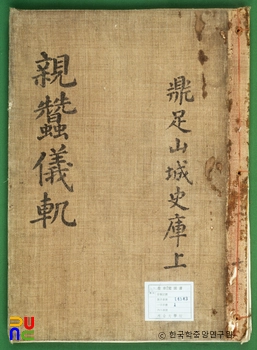 親蠶儀軌
鼎足山城史庫上
ⓒ 한국학중앙연구원